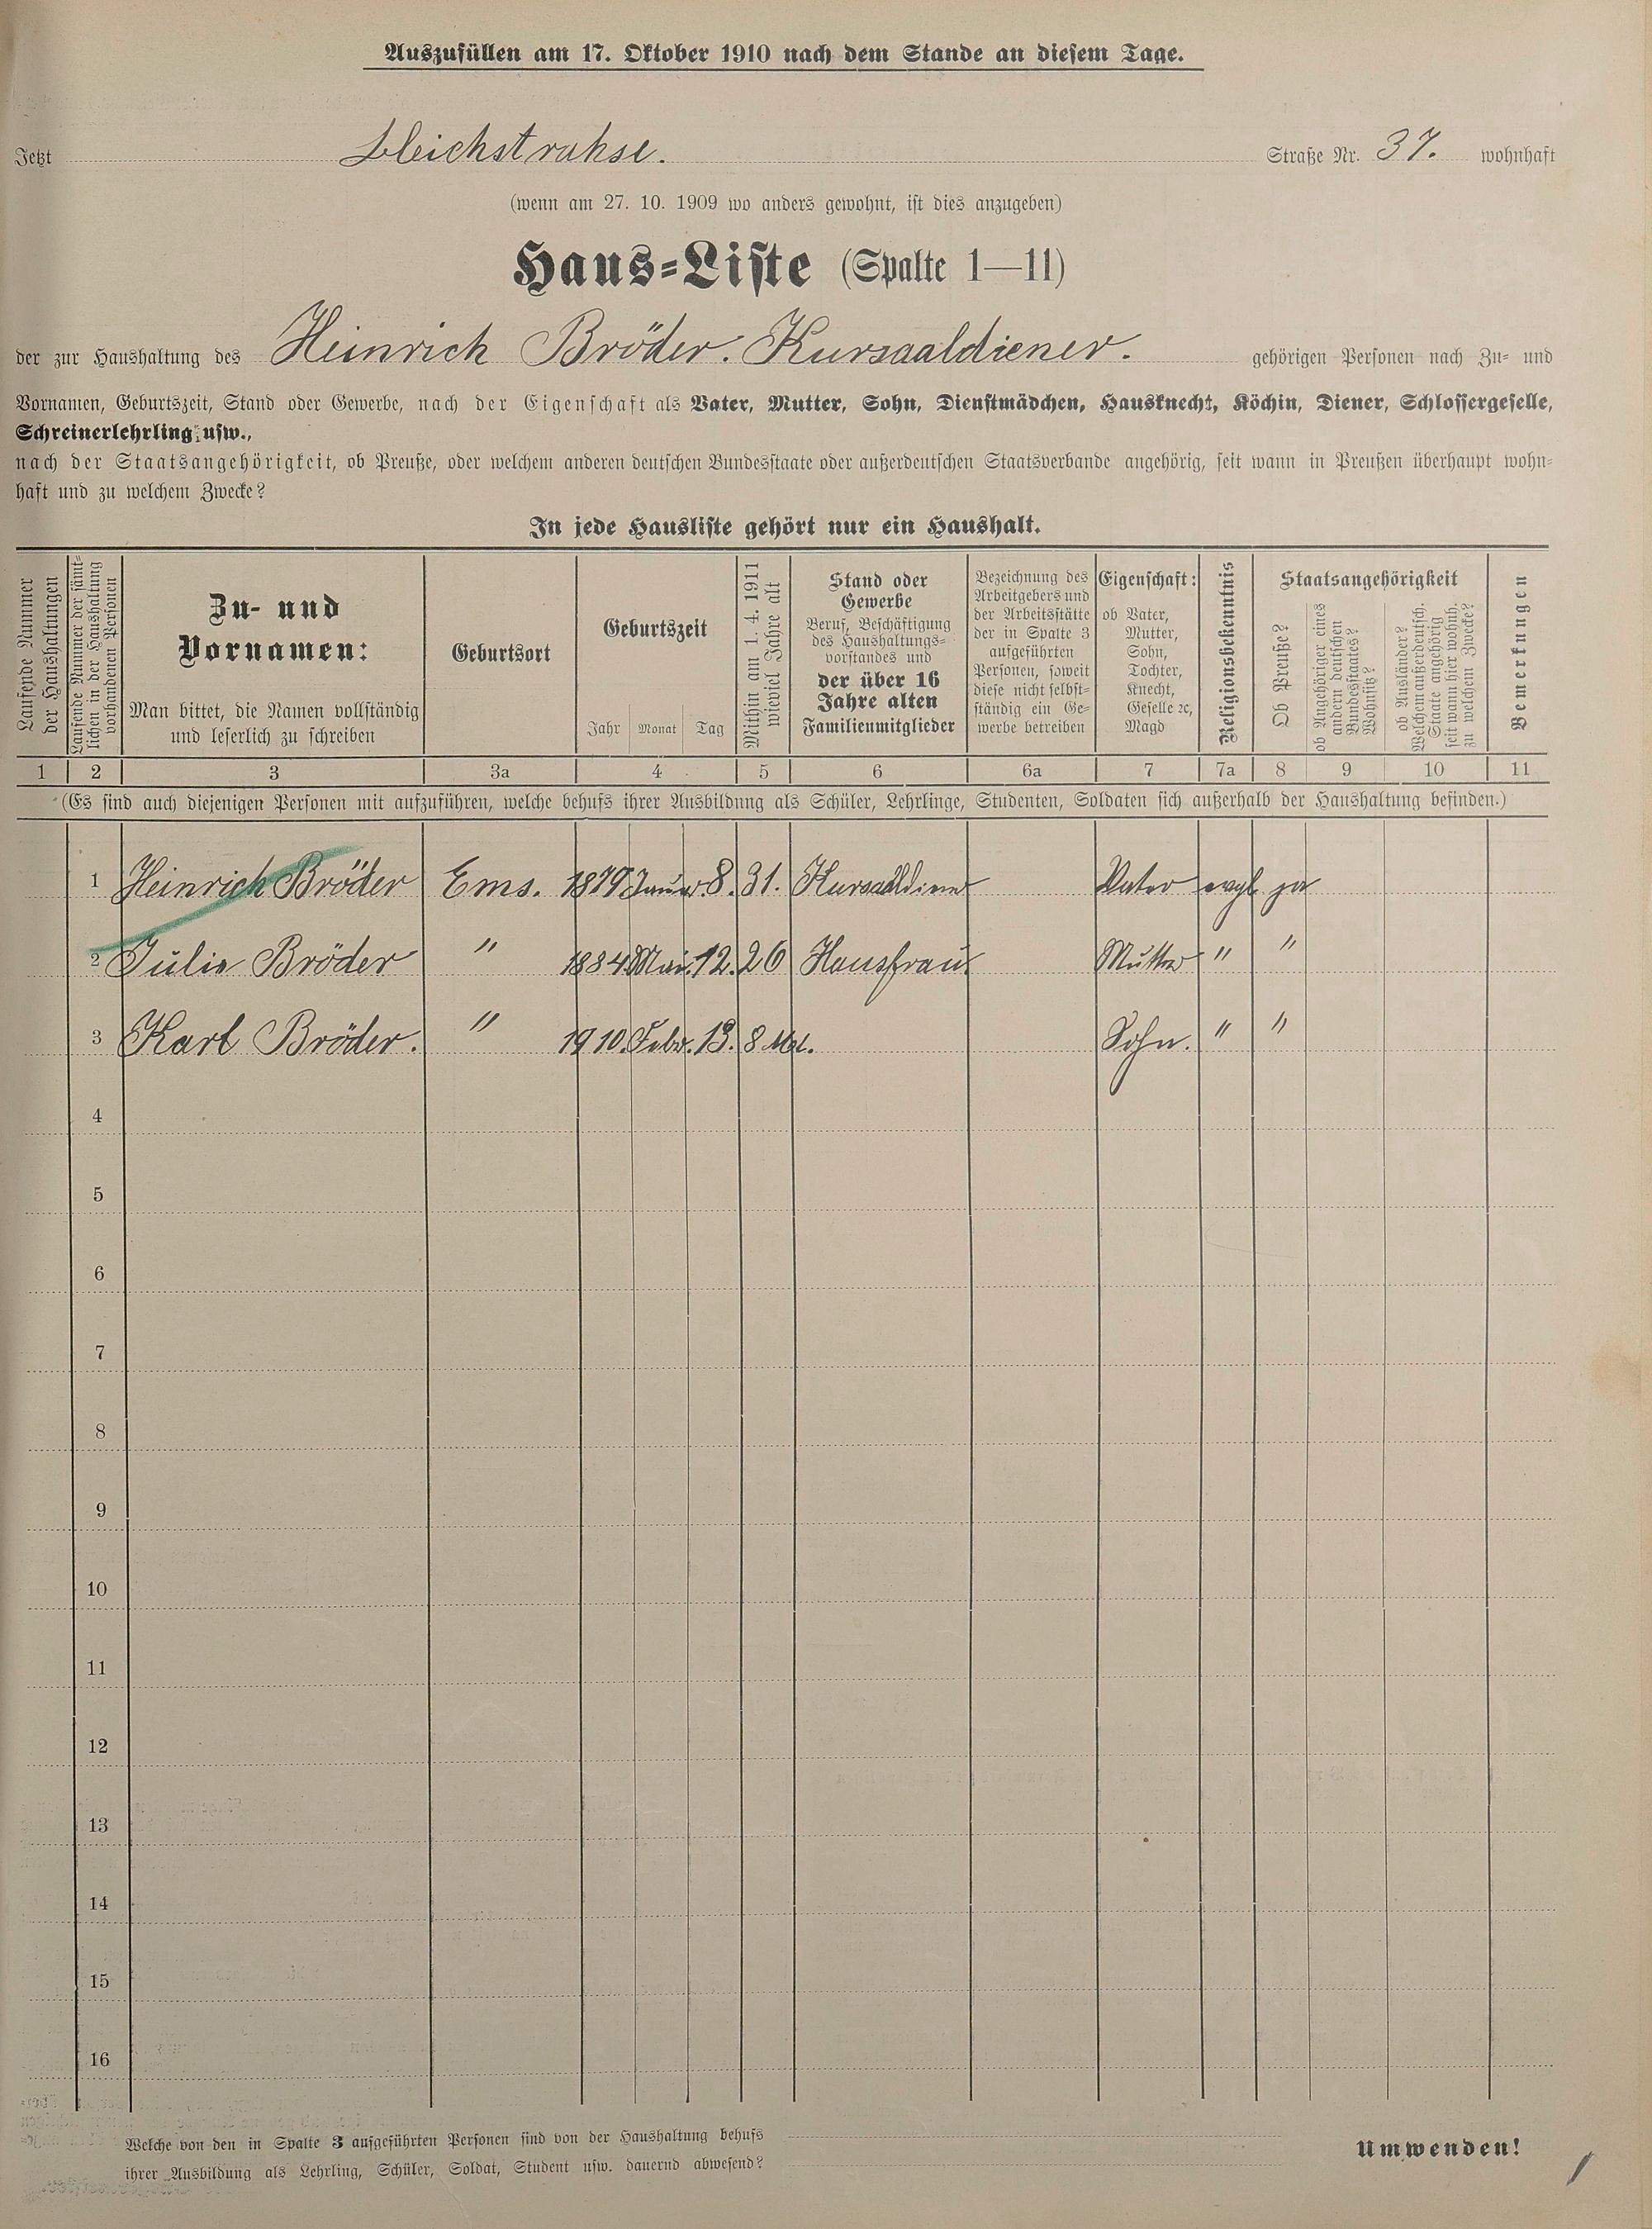 Auszufüllen am 17. Oktober 1910 nach dem Stande an diesem Tage.
Jetzt Bleichstrahse. Straße Nr. 37. wohnhaft
(wenn am 27. 10. 1909 wo anders gewohnt, ist dies anzugeben)
Haus-Liste (Spalte 1—11)
der zur Haushaltung des Heinrich Bröder. Kursaaldiener. gehörigen Personen nach Zu- und
Vornamen, Geburtszeit, Stand oder Gewerbe, nach der Eigenschaft als Vater, Mutter, Sohn, Dienstmädchen, Hausknecht, Köchin, Diener, Schlossergeselle,
Schreinerlehrling usw.,
nach der Staatsangehörigkeit, ob Preuße, oder welchem anderen deutschen Bundesstaate oder außerdeutschen Staatsverbande angehörig, seit wann in Preußen überhaupt wohn-
haft und zu welchem Zwecke?
In jede Hausliste gehört nur ein Haushalt.
Laufende Nummer
der Haushaltungen
Laufende Nummer der sämt-
lichen in der Haushaltung
vorhandenen Personen
Zu- und
Vornamen:
Man bittet, die Namen vollständig
und leserlich zu schreiben
Geburtsort
Geburtszeit
Jahr Monat Tag
Mithin am 1. 4. 1911
wieviel Jahre alt
Stand oder
Gewerbe
Beruf, Beschäftigung
des Haushaltungs-
vorstandes und
der über 16
Jahre alten
Familienmitglieder
Bezeichnung des
Arbeitgebers und
der Arbeitsstätte
der in Spalte 3
aufgeführten
Personen, soweit
diese nicht selbst-
ständig ein Ge-
werbe betreiben
Eigenschaft:
ob Vater,
Mutter,
Sohn,
Tochter,
Knecht,
Geselle ꝛc,
Magd
Religionsbekenntnis
Staatsangehörigkeit
Ob Preuße?
ob Angehöriger eines
andern deutschen
Bundesstaates?
Wohnsitz?
ob Ausländer?
Welchem außerdeutsch.
Staate angehörig
seit wann hier wohnh.
zu welchem Zwecke?
Bemerkungen
1 2 3 3a 4 5 6 6a 7 7a 8 9 10 11
(Es sind auch diejenigen Personen mit aufzuführen, welche behufs ihrer Ausbildung als Schüler, Lehrlinge, Studenten, Soldaten sich außerhalb der Haushaltung befinden.)
1 Heinrich Bröder Ems. 1879 Januar. 8. 31. Kursaaldiener Vater evgl. ja
2 Julie Bröder " 1884. Mai. 12. 26 Hausfrau. Mutter " "
3 Karl Bröder. " 1910. Febr. 13. 8 Mt. Sohn. " "
4
5
6
7
8
9
10
11
12
13
14
15
16
Welche von den in Spalte 3 aufgeführten Personen sind von der Haushaltung behufs
ihrer Ausbildung als Lehrling, Schüler, Soldat, Student usw. dauernd abwesend?
Umwenden!